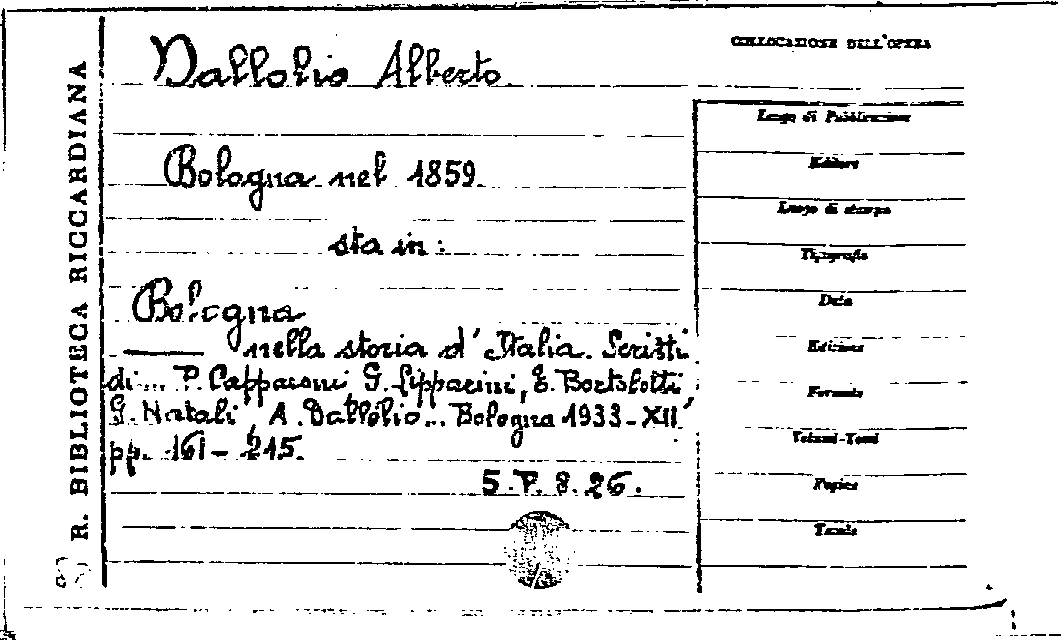 R. BIBLIOTECA RICCARDIANA
Dallolio Alberto
Bologna nel 1859.
sta in :
Bologna
——— nella storia d'Italia. Scritti
di... P. Capparoni G. Lipparini, E. Bortolotti
G. Natali, A. Dallolio... Bologna 1933-XII
pp. 161 - 215.
5.P.8.26.
COLLOCAZIONE DELL'OPERA
Luogo di Pubblicazione
Editore
Luogo di stampa
Tipografia
Data
Edizione
Formato
Volumi-Tomi
Pagine
Tavole